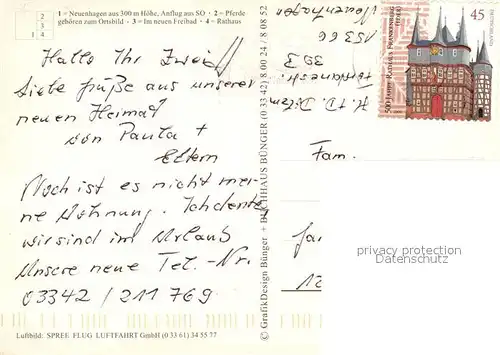 1 = Neuenhagen aus 300 m Höhe, Anflug aus SO · 2 = Pferde
gehören zum Ortsbild · 3 = Im neuen Freibad · 4 = Rathaus
2
3
4
1
Hallo Ihr Zwei
Liebe Grüße aus unserer
neuen Heimat
von Paula +
Eltern
Noch ist es nicht mei-
ne Wohnung. Ich denke,
wir sind im Urlaub
Unsere neue Tel.-Nr.
03342 / 211 769
Luftbild: SPREE FLUG LUFTFAHRT GmbH (0 33 61) 34 55 77
© GrafikDesign Bünger + BUCHHAUS BÜNGER (0 33 42) 8 00 24 / 8 08 52
H. + D.
39 3
153 66
Neuenhagen
45
DEUTSCHLAND
500 Jahre Rathaus Frankenberg
(Eder)
Fam.
privacy protection
Datenschutz